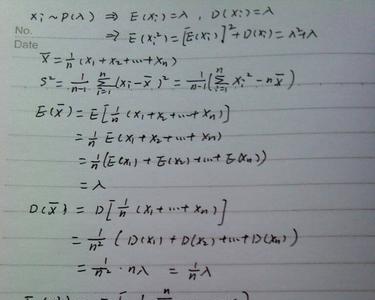 xi ~ P(λ) ⇒ E(xi)=λ , D(xi)=λ
No.
⇒ E(xi²)=[E(xi)]²+D(xi)=λ²+λ
Date
x̄ = 1/n (x1+x2+…+xn)
S² = 1/(n-1) Σ_{i=1}^{n} (xi-x̄)² = 1/(n-1) (Σ_{i=1}^{n} xi² - nx̄)
E(x̄) = E[1/n (x1+x2+…+xn)]
= 1/n E(x1+x2+…+xn)
= 1/n (E(x1)+E(x2)+…+E(xn))
= λ
D(x̄) = D[1/n (x1+…+xn)]
= 1/n² (D(x1)+D(x2)+…+D(xn))
= 1/n² · nλ = 1/n λ